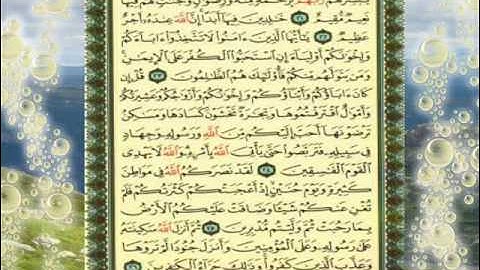 يُبَشِّرُهُمْ رَبُّهُم بِرَحْمَةٍ مِّنْهُ وَرِضْوَٰنٍ وَجَنَّٰتٍ لَّهُمْ فِيهَا
نَعِيمٌ مُّقِيمٌ ٢١ خَٰلِدِينَ فِيهَآ أَبَدًا إِنَّ ٱللَّهَ عِندَهُۥٓ أَجْرٌ
عَظِيمٌ ٢٢ يَٰٓأَيُّهَا ٱلَّذِينَ ءَامَنُوا۟ لَا تَتَّخِذُوٓا۟ ءَابَآءَكُمْ
وَإِخْوَٰنَكُمْ أَوْلِيَآءَ إِنِ ٱسْتَحَبُّوا۟ ٱلْكُفْرَ عَلَى ٱلْإِيمَٰنِ
وَمَن يَتَوَلَّهُم مِّنكُمْ فَأُو۟لَٰٓئِكَ هُمُ ٱلظَّٰلِمُونَ ٢٣ قُلْ إِن
كَانَ ءَابَآؤُكُمْ وَأَبْنَآؤُكُمْ وَإِخْوَٰنُكُمْ وَأَزْوَٰجُكُمْ وَعَشِيرَتُكُمْ
وَأَمْوَٰلٌ ٱقْتَرَفْتُمُوهَا وَتِجَٰرَةٌ تَخْشَوْنَ كَسَادَهَا وَمَسَٰكِنُ
تَرْضَوْنَهَآ أَحَبَّ إِلَيْكُم مِّنَ ٱللَّهِ وَرَسُولِهِۦ وَجِهَادٍ
فِى سَبِيلِهِۦ فَتَرَبَّصُوا۟ حَتَّىٰ يَأْتِىَ ٱللَّهُ بِأَمْرِهِۦ وَٱللَّهُ لَا يَهْدِى
ٱلْقَوْمَ ٱلْفَٰسِقِينَ ٢٤ لَقَدْ نَصَرَكُمُ ٱللَّهُ فِى مَوَاطِنَ
كَثِيرَةٍ وَيَوْمَ حُنَيْنٍ إِذْ أَعْجَبَتْكُمْ كَثْرَتُكُمْ فَلَمْ
تُغْنِ عَنكُمْ شَيْـًٔا وَضَاقَتْ عَلَيْكُمُ ٱلْأَرْضُ
بِمَا رَحُبَتْ ثُمَّ وَلَّيْتُم مُّدْبِرِينَ ٢٥ ثُمَّ أَنزَلَ ٱللَّهُ سَكِينَتَهُۥ
عَلَىٰ رَسُولِهِۦ وَعَلَى ٱلْمُؤْمِنِينَ وَأَنزَلَ جُنُودًا لَّمْ تَرَوْهَا
وَعَذَّبَ ٱلَّذِينَ كَفَرُوا۟ وَذَٰلِكَ جَزَآءُ ٱلْكَٰفِرِينَ ٢٦